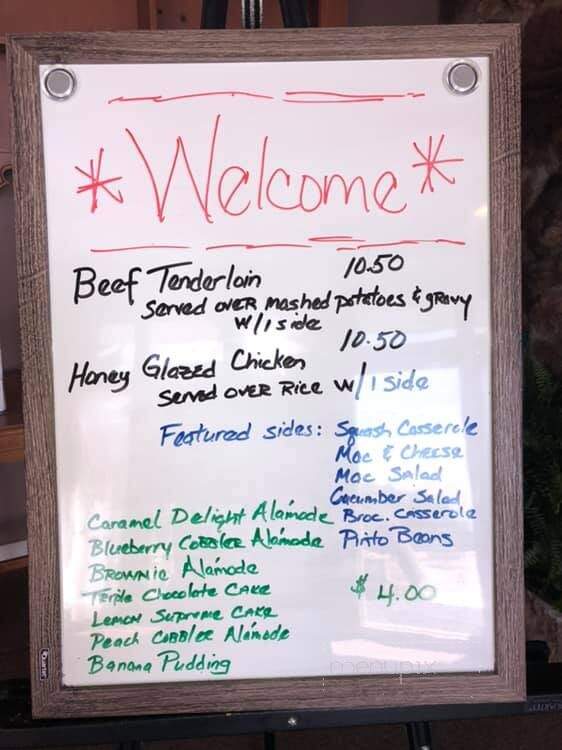 *Welcome*
Beef Tenderloin 10.50
Served over mashed potatoes & gravy
w/1 side
Honey Glazed Chicken 10.50
Served over Rice w/1 side
Featured sides: Squash Casserole
Mac & Cheese
Mac Salad
Cucumber Salad
Broc. Casserole
Pinto Beans
Caramel Delight Alamode
Blueberry Cobbler Alamode
Brownie Alamode
Triple Chocolate Cake
Lemon Supreme Cake
Peach Cobbler Alamode
Banana Pudding
$ 4.00
Quartet
menupix